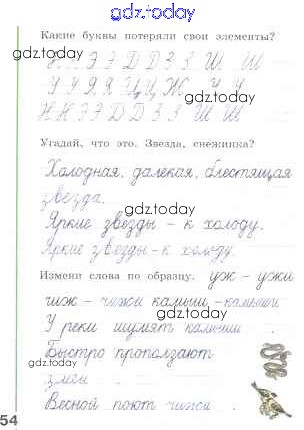 gdz.today
Какие буквы потеряли свои элементы?
Н Н Э Э Д Д З З Ш Ш
У У Я Я Ц Ц Ж У У
gdz.today
Н Н Э Э Д Д З З Ш Ш
Угадай, что это. Звезда, снежинка?
gdz.today
Холодная, далекая, блестящая
звезда.
gdz.today
Яркие звёзды – к холоду.
Яркие звёзды – к холоду.
gdz.today
Измени слова по образцу. уж – ужи
чиж – чижи камыш – камыши
gdz.today
У реки шумят камыши .
Быстро проползают
gdz.today
змеи
Весной поют чижи .
gdz.today
54